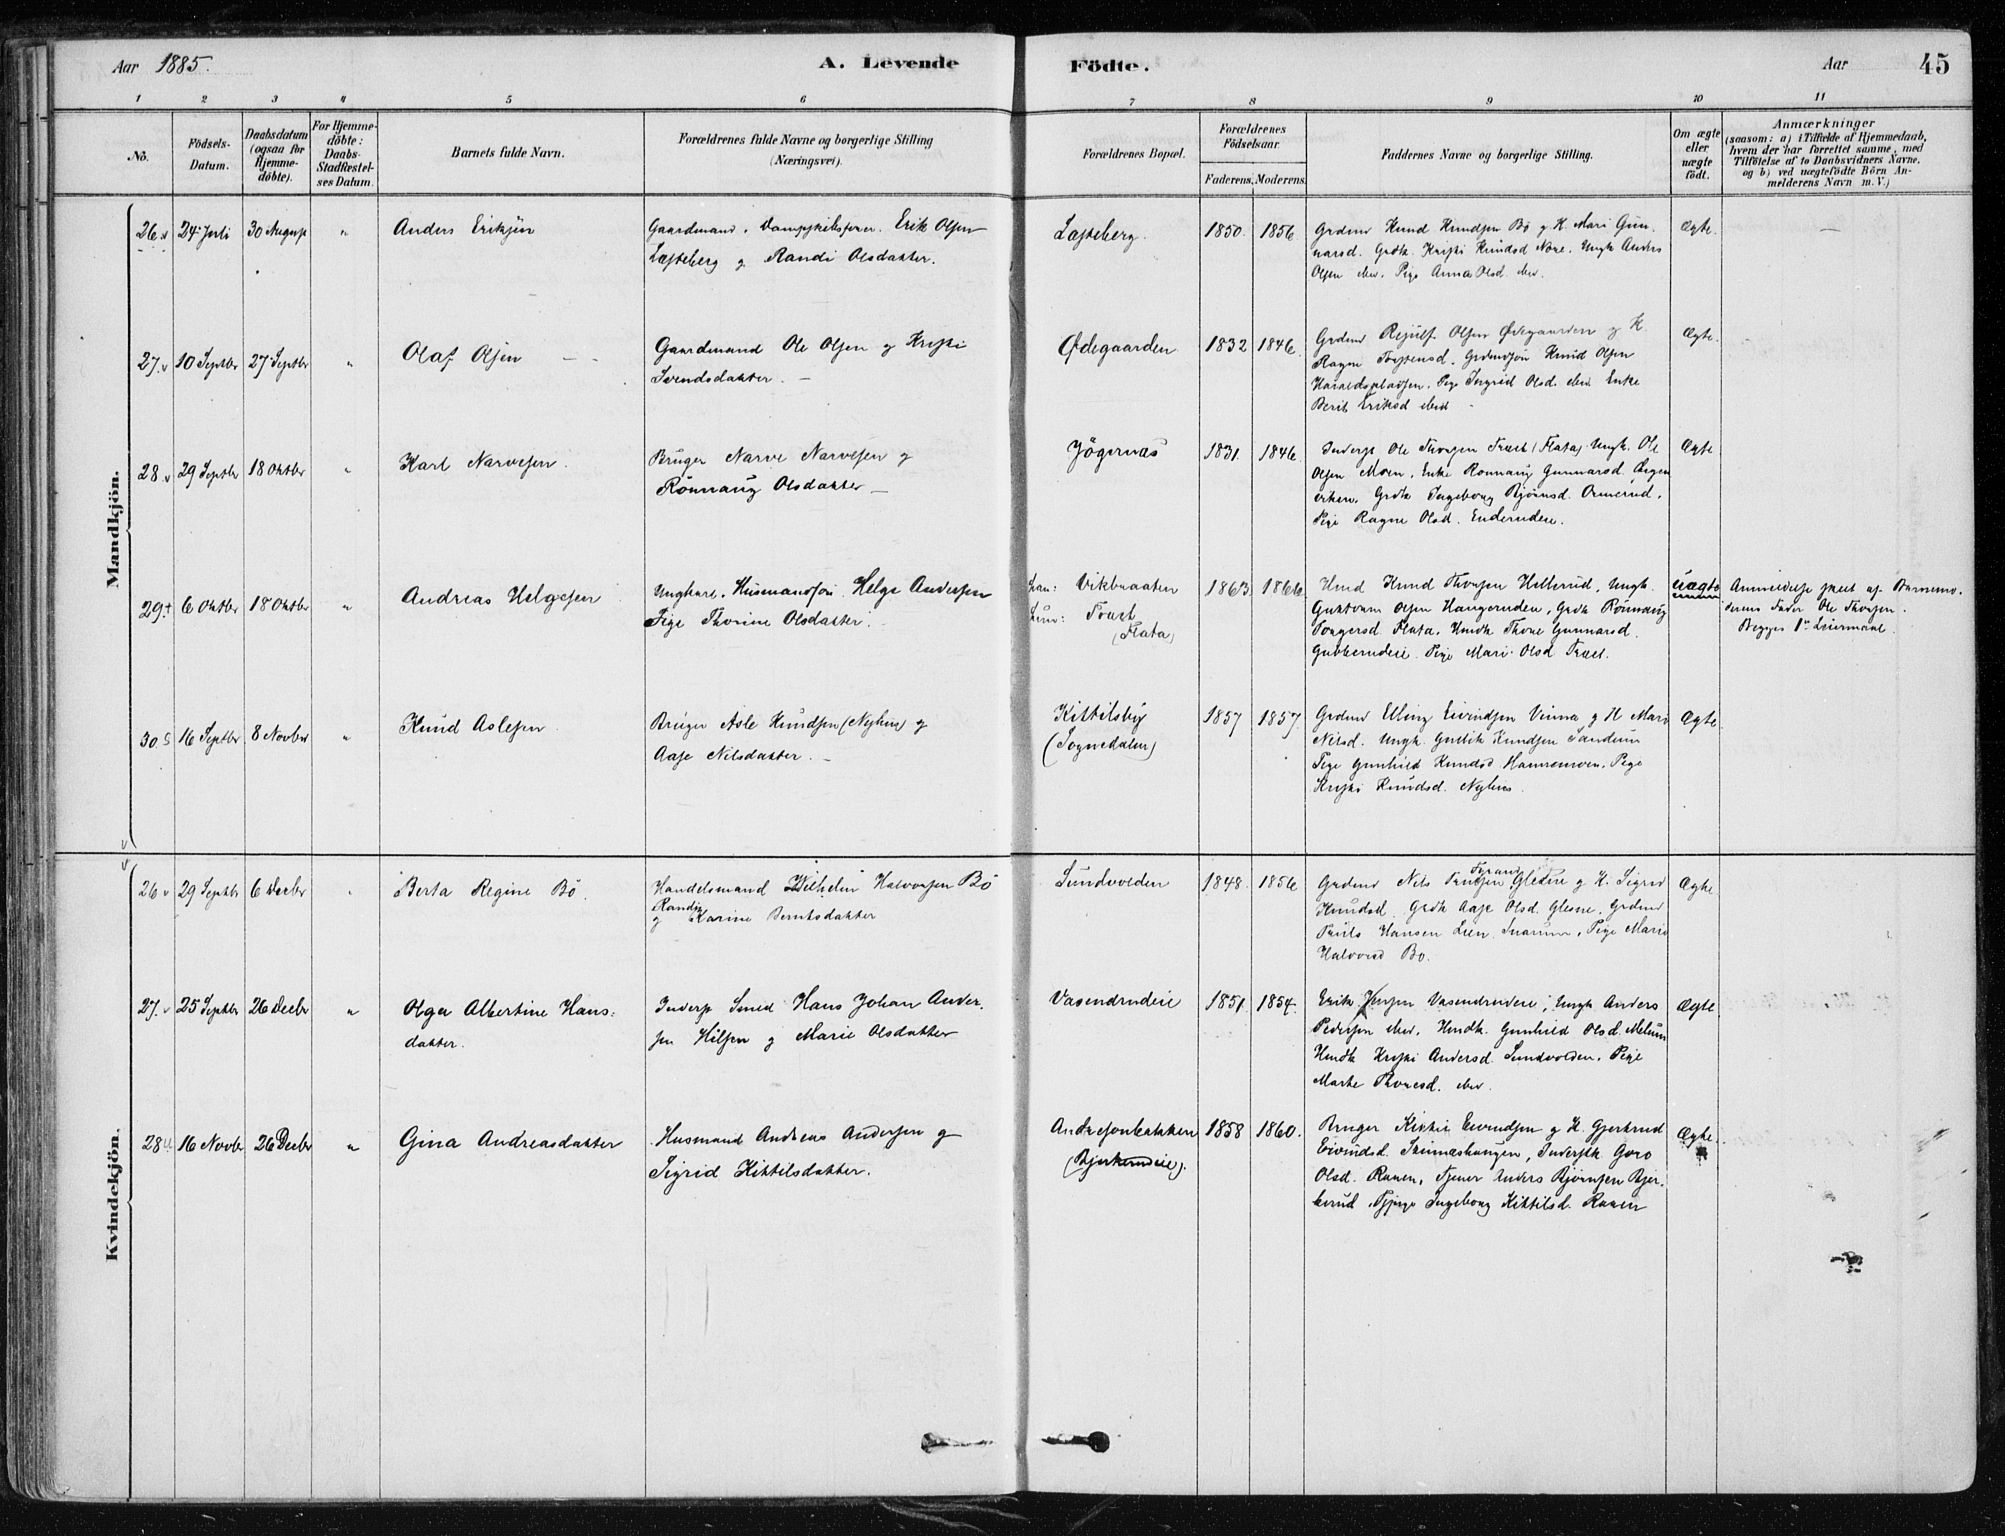 Aar 1885.
A. Levende
Födte.
Aar
45
1 2 3 4 5 6 7 8 9 10 11
No.
Födsels-
Datum.
Daabsdatum
(ogsaa for
Hjemme-
döbte).
For Hjemme-
döbte:
Daabs-
Stadfæstel-
ses Datum.
Barnets fulde Navn.
Forældrenes fulde Navne og borgerlige Stilling
(Næringsvei).
Forældrenes Bopæl.
Forældrenes
Födselsaar.
Faderens. Moderens.
Faddernes Navne og borgerlige Stilling.
Om ægte
eller
uægte
födt.
Anmærkninger
(saasom: a) i Tilfælde af Hjemmedaab,
hvem der har forrettet samme, med
Tilföielse af to Daabsvidners Navne,
og b) ved uægtefödte Börn An-
melderens Navn m. V.)
Mandkjön.
26 24 Juli 30 August " Anders Eriksen
Gaardmand, Dampskibsfører Erik Olsen
Læsteberg og Randi Olsdatter.
Læsteberg. 1850. 1856
Grdmd Knud Knudsen Bö og K. Mari Gun-
narsd. Grdk. Kristi Knudsd Nore. Ungk Anders
Olsen ibid. Pige Anna Olsd. ibid.
Ægte.
—
27. 10 Septbr 27 Septbr " Olaf Olsen
Gaardmand Ole Olsen og Kristi
Svendsdatter. —
Ödegaarden 1832 1846
Grdmd Olsen Ödegaarden og K
Ragne Torstensd. Grdmdsøn Knud Olsen
Haraldspladsen. Pige Ingrid Olsd. ibid Enke
Berit Eriksd ibid
Ægte.
28 29 Septbr 18 Oktbr " Karl Narvesen.
Bruger Narve Narvesen og
Rönnaug Olsdatter —
Jögernæs 1831. 1846.
Inderst Ole Thorsen Træet (Flata) Ungk. Ole
Olsen Moen, Enke Rönnaug Gunnarsd.
Grdk Ingeborg Bjørnsd. Ormerud.
Pige Ragne Olsd. Enderudeie.
Ægte
29 6 Oktbr 18 Oktbr " Andreas Helgesen
Ungkarl, Husmandsøn Helge Andersen
Pige Thorine Olsdatter. —
han: Vikbraaten
hun: Træet
(Flata)
1863. 1866.
Hmd Knud Thorsen Hellerud, Ungk.
Guttorm Olsen Haugerudeie, Grdk Rönnaug
Flata. Hmdk Thone Gunnarsd.
Gubberudeie. Pige Mari Olsd Træet.
uægte
Anmeldelse skeet af Barnemo-
derens Fader Ole Thorsen.
Begges 1ste Leiermaal.
30. 16 Septbr 8 Novbr " Knud Aslesen
Bruger Asle Knudsen (Nyhus) og
Aase Nilsdatter. —
Kittilsby
(Sognedalen)
1857 1857.
Grdmd Elling Eivindsen Vinna og K Mari
Nilsd. Ungk. Gutik Knudsen Sandum
Pige Gunhild Knudsd Hannemoen. Pige
Kristi Knudsd. Nyhus.
Ægte
Kvindekjön.
26 29 Septbr 6 Decbr " Berta Regine Bö.
Handelsmand Wilhelm Halvorsen Bö
Randi
og Karine Berntsdatter
Sundvolden 1848. 1856.
Grdmd Nils Glesne og K. Sigrid
Knudsd. Grdk Aase Olsd. Glesne. Grdmd
Truls Hansen Lien Snarum, Pige Marie
Halvorsd Bö.
Ægte
27. 25 Septbr 26 Decbr " Olga Albertine Hans-
datter.
Inderst Smed Hans Johan Ander-
sen Hilsen og Marie Olsdatter
Vasendrudeie 1851. 1854.
Erik Vasendrudeie, Ungk Anders
Pedersen ibid, Hmdk. Gunhild Olsd. Melum
Hmdk Kristi Andersd. Sundvolden. Pige
Marte Thoresd. ibid.
Ægte
28 16 Novbr 26 Decbr " Gina Andreasdatter
Husmand Andreas Andersen og
Sigrid Kittilsdatter.
(Bjerkerudeie).
1858 1860.
Bruger Kittil Eivindsen og K. Gjertrud
Eivindsd. Inderstk Goro
Olsd. Raaen, Tjener Anders Bjørnsen Bjer-
kerud, Tjpige Ingeborg Kittilsd. Raaen
Ægte